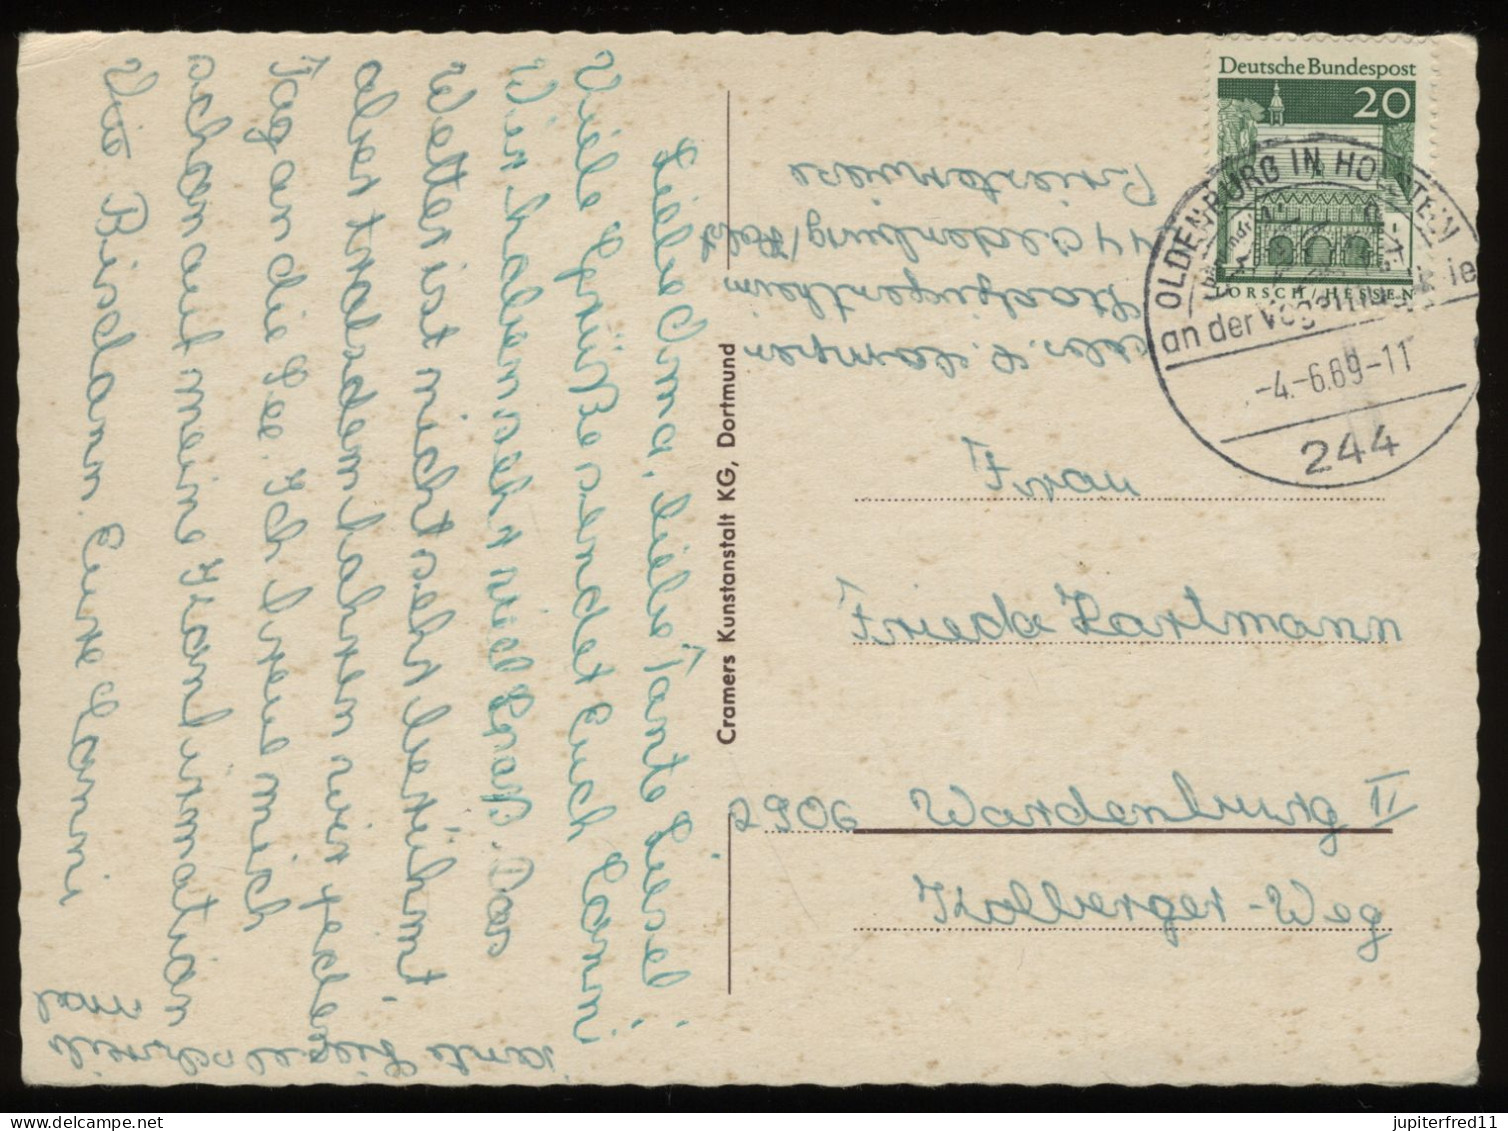 Deutsche Bundespost
20
LORSCH/HESSEN
OLDENBURG IN HOLSTEIN
an der Vogelfluglinie
-4.-6.69-11
244
Stadjugendheim
244 Oldenburg/Holst
Frau
Frieda Hartmann
2906 Wardenburg II
Kolberger-Weg
Cramers Kunstanstalt KG, Dortmund
Liebe Oma, liebe Tante Liesel
Viele Grüße sendet Euch Conni
Wir haben sehr viel Spaß. Das
Wetter ist nicht sehr berühmt
aber trotzdem fahren wir jeden
Tag an die See. Ich freue mich
schon auf meine Konfirmation
Bis dann Eure Conni
Tante Liesel schreib
mal
jupiterfred11